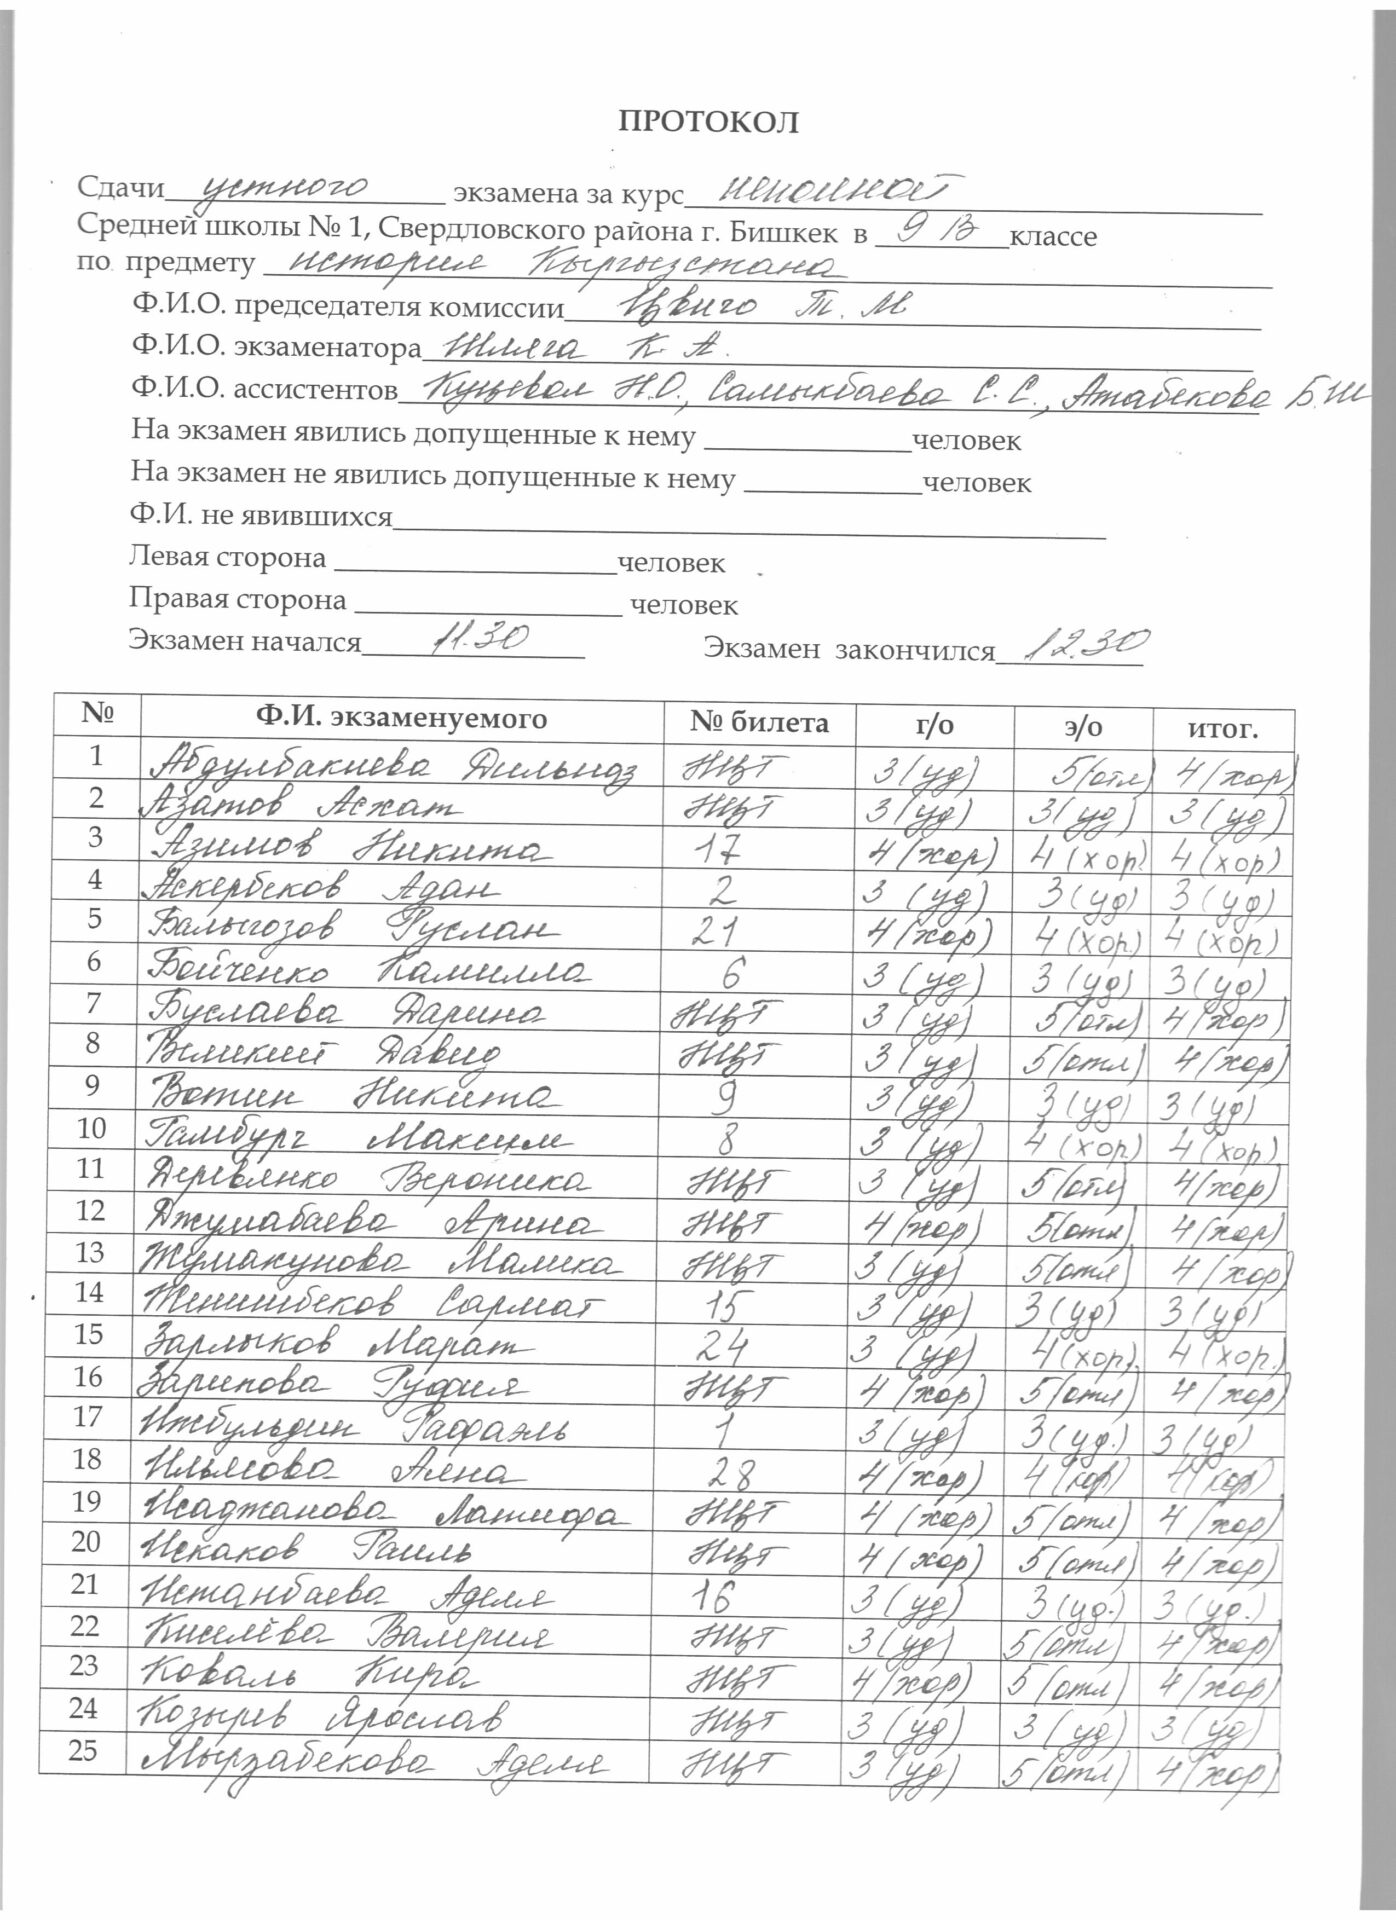 ПРОТОКОЛ
Сдачи устного экзамена за курс неполной
Средней школы № 1, Свердловского района г. Бишкек в 9 В классе
по предмету история Кыргызстана
Ф.И.О. председателя комиссии Цвиго Т. М
Ф.И.О. экзаменатора Шляга К. А.
Ф.И.О. ассистентов Куцевол Н.О., Самыкбаева С. С., Атабекова Б.Ш
На экзамен явились допущенные к нему человек
На экзамен не явились допущенные к нему человек
Ф.И. не явившихся
Левая сторона человек
Правая сторона человек
Экзамен начался 11.30 Экзамен закончился 12.30
№ Ф.И. экзаменуемого № билета г/о э/о итог.
1 Абдулбакиева Дильноз НЦТ 3 (уд) 5 (отл) 4 (хор)
2 Азатов Асхат НЦТ 3 (уд) 3 (уд) 3 (уд)
3 Азимов Никита 17 4 (хор) 4 (хор) 4 (хор)
4 Аскербеков Адан 2 3 (уд) 3 (уд) 3 (уд)
5 Балыгозов Руслан 21 4 (хор) 4 (хор) 4 (хор)
6 Бойченко Камилла 6 3 (уд) 3 (уд) 3 (уд)
7 Буслаева Дарина НЦТ 3 (уд) 5 (отл) 4 (хор)
8 Великий Давид НЦТ 3 (уд) 5 (отл) 4 (хор)
9 Вотин Никита 9 3 (уд) 3 (уд) 3 (уд)
10 Гамбург Максим 8 3 (уд) 4 (хор) 4 (хор)
11 Деревянко Вероника НЦТ 3 (уд) 5 (отл) 4 (хор)
12 Джумабаева Арина НЦТ 4 (хор) 5 (отл) 4 (хор)
13 Жумакунова Малика НЦТ 3 (уд) 5 (отл) 4 (хор)
14 Женишбеков Сармат 15 3 (уд) 3 (уд) 3 (уд)
15 Зарлыков Марат 24 3 (уд) 4 (хор) 4 (хор.)
16 Зарипова Руфия НЦТ 4 (хор) 5 (отл) 4 (хор)
17 Ижбульдин Рафаэль 1 3 (уд) 3 (уд.) 3 (уд)
18 Ильясова Ална 28 4 (хор) 4 (хор) 4 (хор)
19 Исаджанова Латифа НЦТ 4 (хор) 5 (отл) 4 (хор)
20 Искаков Раиль НЦТ 4 (хор) 5 (отл) 4 (хор)
21 Истанбаева Аделя 16 3 (уд) 3 (уд.) 3 (уд.)
22 Киселёва Валерия НЦТ 3 (уд) 5 (отл) 4 (хор)
23 Коваль Кира НЦТ 4 (хор) 5 (отл) 4 (хор)
24 Козырев Ярослав НЦТ 3 (уд) 3 (уд) 3 (уд)
25 Мырзабекова Аделя НЦТ 3 (уд) 5 (отл) 4 (хор)